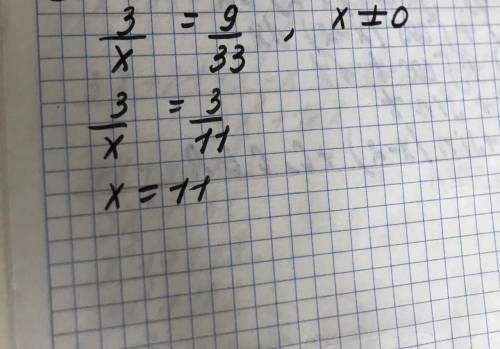 3/x = 9/33, x ≠ 0
3/x = 3/11
x = 11